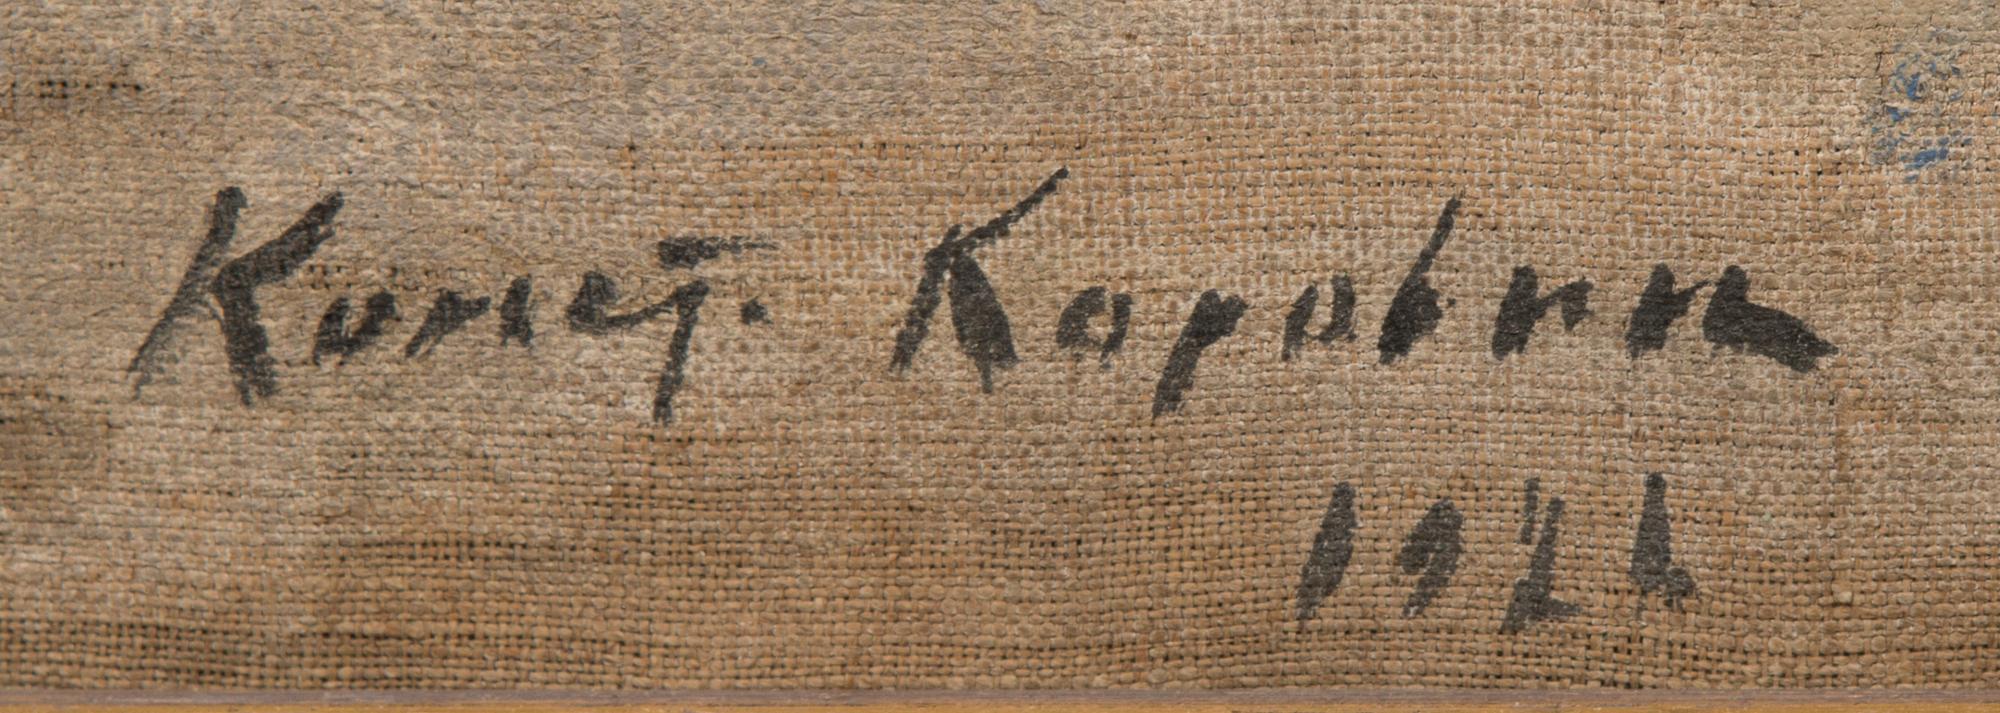 Конст. Коровин
192